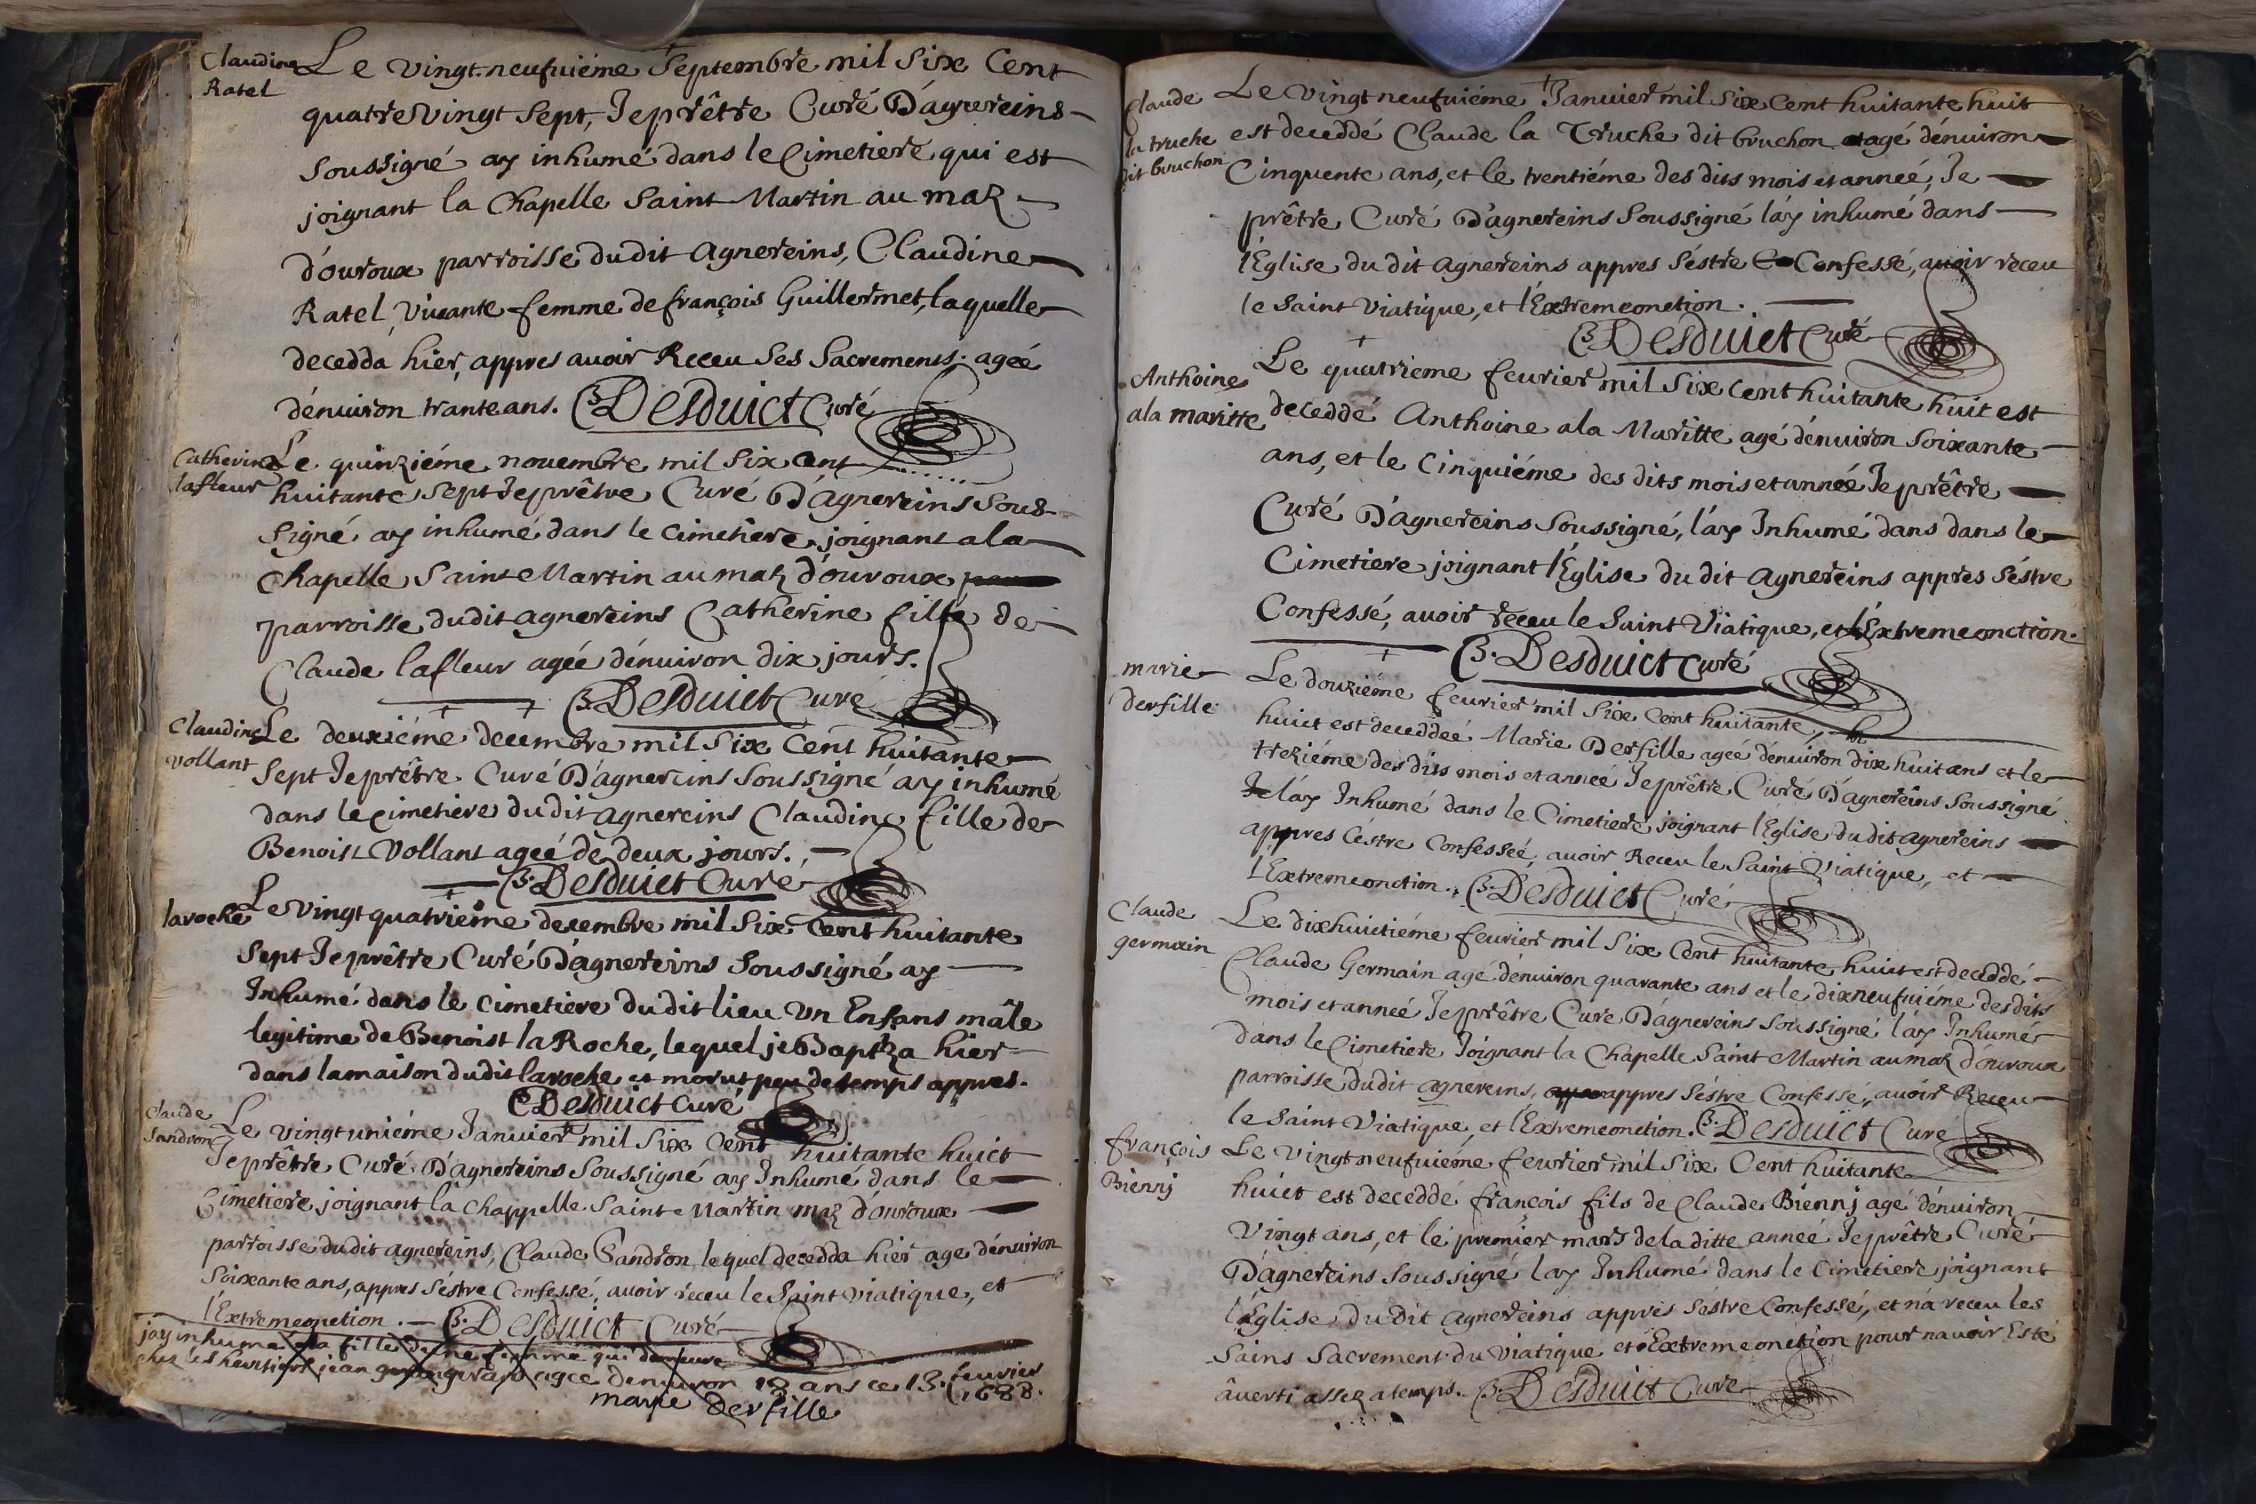 Claudine
Ratel
Le vingt neufuiéme Septembre mil Six Cent
quatre Vingt Sept, Je prêtre Curé D'agnereins
Soussigné ay inhumé dans le Cimetiere qui est
joignant la Chapelle Saint Martin au maz
d'ouroux parroisse dudit Agnereins, Claudine
Ratel, Viuante femme de françois Guillermet, laquelle
decedda hier, appres auoir Receu Ses Sacrements. ageé
dénuiron trante ans. B. Desduict Curé
Catherine
lafleur
Le quinziéme nouembre mil Six Cent
huitante Sept Je prêtre Curé D'Agnereins Sous-
Signé ay inhumé dans le Cimetiere joignant a la
Chapelle Saint Martin au maz d'ouroux
parroisse dudit agnereins Catherine fille de
Claude lafleur agée dénuiron dix jours.
B. Desduict Curé
Claudine
vollant
Le deuxiéme decembre mil Six Cent huitante
Sept Je prêtre Curé D'agnereins Soussigné ay inhumé
dans le Cimetiere dudit agnereins Claudine fille de
Benoist Vollant ageé de deux jours.
B. Desduict Curé
laroche
Le Vingt quatriéme decembre mil Six Cent huitante
Sept Je prêtre Curé D'agnereins Soussigné ay
Inhumé dans le Cimetiere dudit lieu Vn Enfans mâle
legitime de Benoist la Roche, lequel je Baptiza hier
dans la maison dudit laroche et morut peu de temps appres.
B. Desduict Curé
Claude
Sandron
Le Vingt uniéme Januier mil Six Cent huitante huict
Je prêtre Curé D'agnereins Soussigné ay Inhumé dans le
Cimetiere joignant la Chappelle Saint Martin maz d'ouroux
parroisse dudit agnereins, Claude Sandron lequel decedda hier agé dénuiron
Soixante ans, appres Séstre Confessé, auoir réceu le Saint Viatique, et
l'Extremeonction. B. Desduict Curé
jay inhumé la fille d'une femme qui demeure
chez les heritiers jean girard agee denuiron 18 ans ce 13. feurier
1688.
marie derfille
Claude
la truche
dit bruchon
Le Vingt neufuiéme Januier mil Six Cent huitante huit
est deceddé Claude la Truche dit bruchon agé dénuiron
Cinquente ans, et le trentiéme des dits mois et année, Je
prêtre Curé D'agnereins Soussigné láy inhumé dans
l'Eglise du dit agnereins appres Séstre Confessé, auoir receu
le Saint Viatique, et l'Extremeonction.
B. Desduict Curé
Anthoine
ala maritte
Le quatrieme feurier mil Six cent huitante huit est
deceddé Anthoine ala Maritte agé dénuiron Soixante
ans, et le Cinquiéme des dits mois et année Je prêtre
Curé D'agnereins Soussigné, láy Inhumé dans dans le
Cimetiere joignant l'Eglise du dit agnereins appres Séstre
Confessé, auoir receu le Saint Viatique, et l'Extremeonction.
B. Desduict Curé
marie
derfille
Le douziéme feurier mil Six Cent huitante
huict est deceddeé Marie Derfille ageé dénuiron dix huit ans et le
treziéme des dits mois et année Je prêtre Curé D'agnereins Soussigné
Je láy Inhumé dans le Cimetiere joignant l'Eglise du dit agnereins
appres Céstre Confesseé, auoir Receu le Saint Viatique, et
l'Extremeonction. B. Desduict Curé
Claude
germain
Le dixhuictiéme feurier mil Six Cent huitante huict est deceddé
Claude Germain agé dénuiron quarante ans et le dixneufuiéme des dits
mois et année Je prêtre Curé D'agnereins Soussigné láy Inhumé
dans le Cimetiere Joignant la Chapelle Saint Martin au maz D'ouroux
parroisse dudit agnereins, appres Séstre Confessé, auoir Receu
le Saint Viatique, et l'Extremeonction. B. Desduict Curé
françois
Bienny
Le Vingt neufuiéme feurier mil Six Cent huitante
huict est deceddé françois fils de Claude Bienny agé dénuiron
Vingt ans, et le premier mars de la ditte année Je prêtre Curé
D'agnereins Soussigné láy Inhumé dans le Cimetiere joignant
l'Eglise du dit agnereins appres Séstre Confessé, et n'a receu les
Sains Sacrement du Viatique et Extremeonction pour nauoir Esté
âuerti assez a temps. B. Desduict Curé